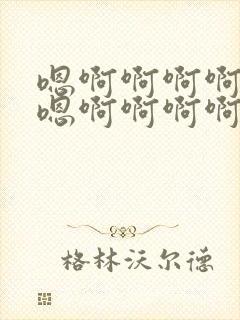 嗯啊啊啊啊
嗯啊啊啊啊
格林沃尔德